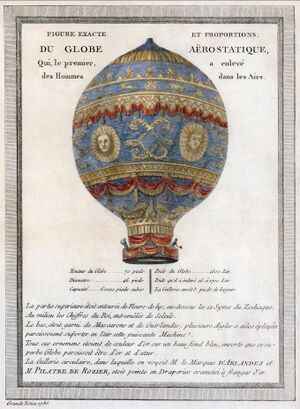 FIGURE EXACTE ET PROPORTIONS,
DU GLOBE AËROSTATIQUE,
Qui, le premier, a enlevé
des Hommes dans les Airs.
Hauteur du Globe 70. pieds Poids du Globe 1600 Liv.
Diametre 46. pieds Poids qu'il a enlevé 16 à 1700 Liv.
Capacité 60000 pieds cubes La Gallerie avoit 3 pieds de largeur
La partie superieure étoit entourée de Fleurs-de-lys, au-dessous les 12 Signes du Zodiaque.
Au milieu les Chiffres du Roi, entremêlés de Soleils
Le bas, étoit garni de Mascarons et de Guirlandes, plusieurs Aigles à ailes éployées
paroissoient supporter en l'air cette puissante Machine
Tous ces ornemens étoient de couleur d'or sur un beau fond bleu, ensorte que ce su-
perbe Globe paroissoit être d'or et d'azur
La Gallerie circulaire, dans laquelle on voyoit M. le Marquis D'ARLANDES et
M. PILATRE DE ROZIER, étoit peinte en Draperies cramoisi à franges d'or.